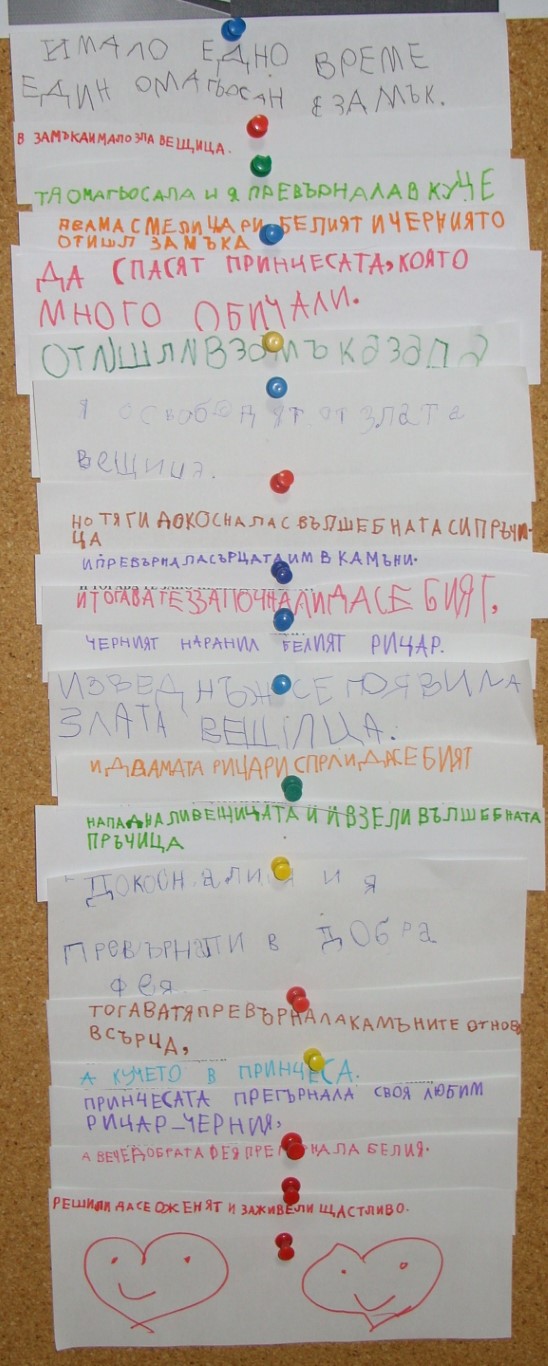 ИМАЛО ЕДНО ВРЕМЕ
ЕДИН ОМАГЬОСАН ЗАМЪК.
В ЗАМЪКА ИМАЛО ЗЛА ВЕЩИЦА.
ТЯ ОМАГЬОСАЛА И Я ПРЕВЪРНАЛА В КУЧЕ
ДВАМА СМЕЛИ ЦАРИ, БЕЛИЯТ И ЧЕРНИЯТО
ОТИШЛ ЗАМЪКА
ДА СПАСЯТ ПРИНЦЕСАТА, КОЯТО
МНОГО ОБИЧАЛИ.
ОТИШЛИ В ЗАМЪКА ЗА ДА
Я ОСВОБОДЯТ ОТ ЗЛАТА
ВЕЩИЦА.
НО ТЯ ГИ ДОКОСНАЛА С ВЪЛШЕБНАТА СИ ПРЪЧИ-
ЦА
И ПРЕВЪРНАЛА СЪРЦАТА ИМ В КАМЪНИ.
И ТОГАВА ТЕ ЗАПОЧНАЛИ ДА СЕ БИЯТ,
ЧЕРНИЯТ НАРАНИЛ БЕЛИЯТ РИЦАР.
ИЗВЕДНЪЖ СЕ ПОЯВИЛА
ЗЛАТА ВЕЩИЦА.
И ДВАМАТА РИЦАРИ СПРЛИ ДЖЕ БИЯТ
НАПАДНАЛИ ВЕЩИЦАТА И Й ВЗЕЛИ ВЪЛШЕБНАТА
ПРЪЧИЦА
ДОКОСНАЛИ Я И Я
ПРЕВЪРНАЛИ В ДОБРА
ФЕЯ
ТОГАВА ТЯ ПРЕВЪРНАЛА КАМЪНИТЕ ОТНОВ
В СЪРЦА,
А КУЧЕТО В ПРИНЦЕСА.
ПРИНЦЕСАТА ПРЕГЪРНАЛА СВОЯ ЛЮБИМ
РИЦАР-ЧЕРНИЯ,
А ВЕЧЕ ДОБРАТА ФЕЯ ПРЕГЪРНАЛА БЕЛИЯ.
РЕШИЛИ ДА СЕ ОЖЕНЯТ И ЗАЖИВЕЛИ ЩАСТЛИВО.